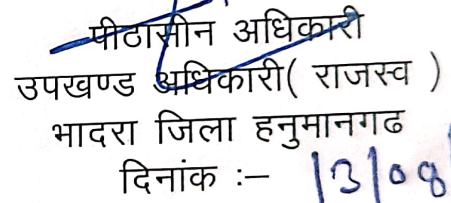 पीठासीन अधिकारी
उपखण्ड अधिकारी( राजस्व )
भादरा जिला हनुमानगढ
दिनांक :– 13/08